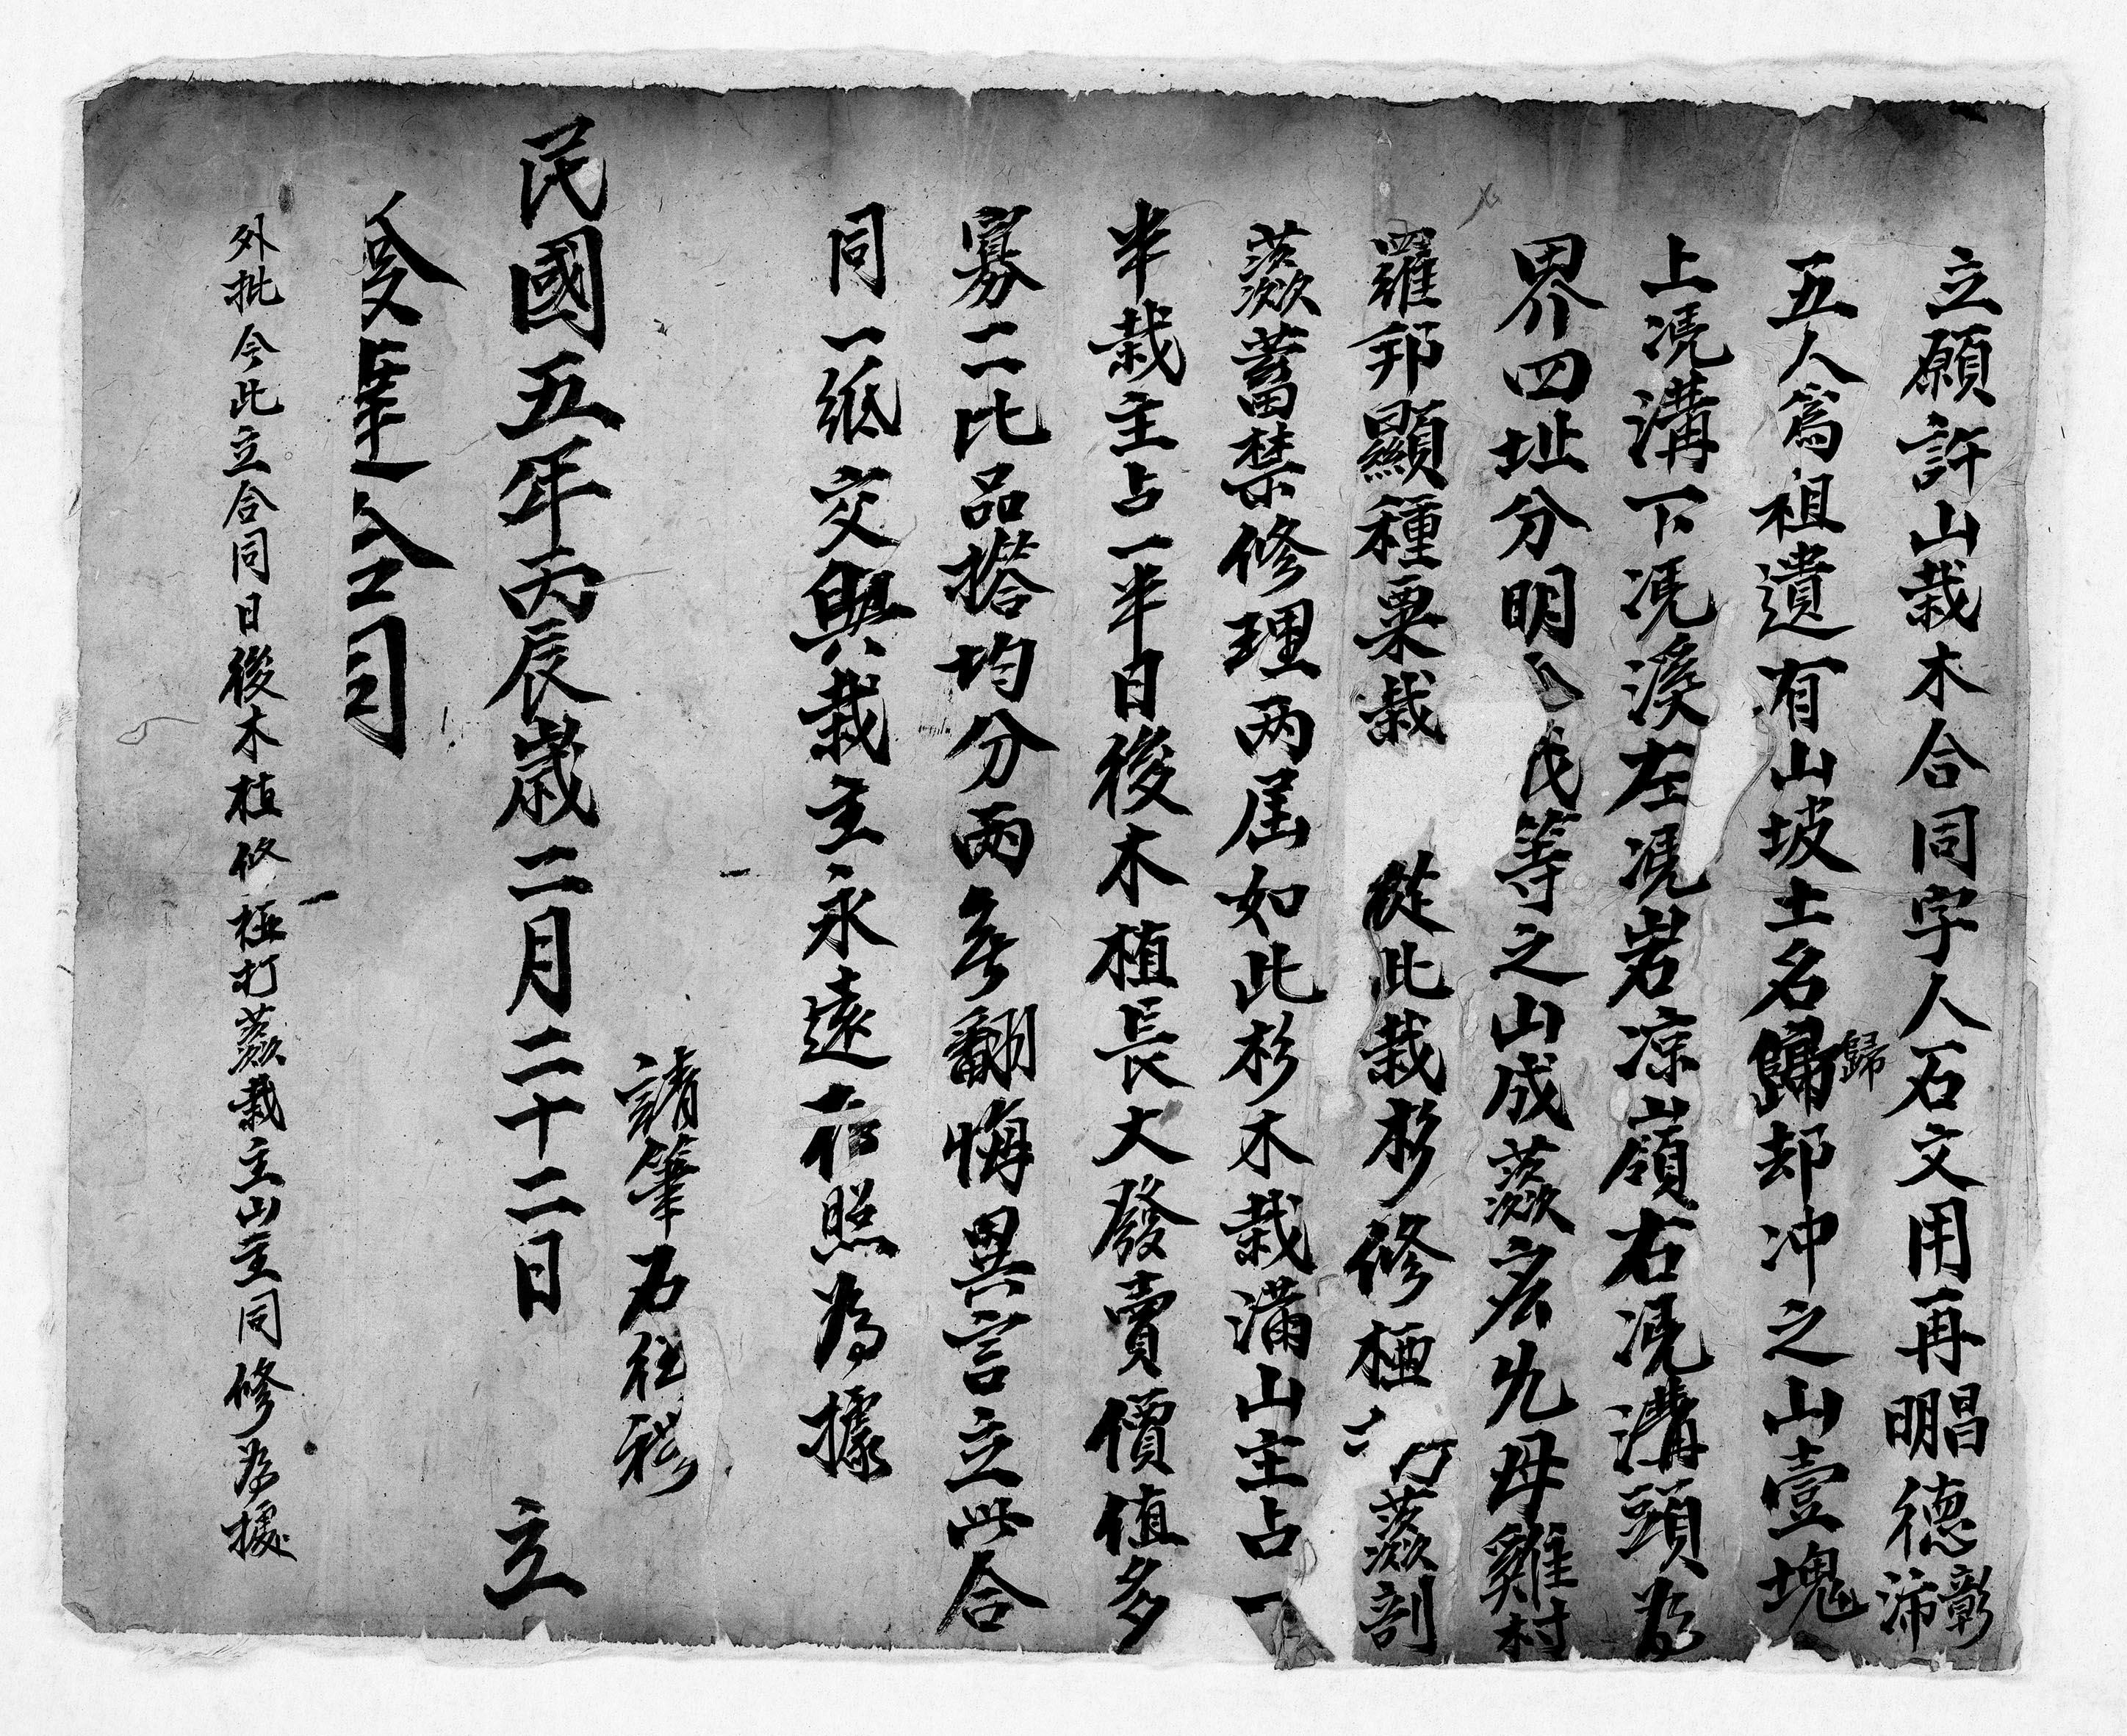 立願許山栽木合同字人石文用再明昌德沛彰
五人為祖遺有山坡土名歸却冲之山壹塊
歸
上凴溝下凴溪左凴岩凉嶺右凴溝頭為
界四址分明 等之山成蕨 母雞村
羅邦顯種粟栽 從此栽杉修極 打蕨剖
蕨蓄禁修理两届如此杉木栽滿山主占一
半栽主占一半日後木植長大發賣價值多
寡二比品搭均分兩 翻悔異言立此合
同一紙交與栽主永遠存照為據
請筆石
民國五年丙辰歲二月二十二日 立
外批今此立合同日後木植修極打蕨栽主山主同修為據